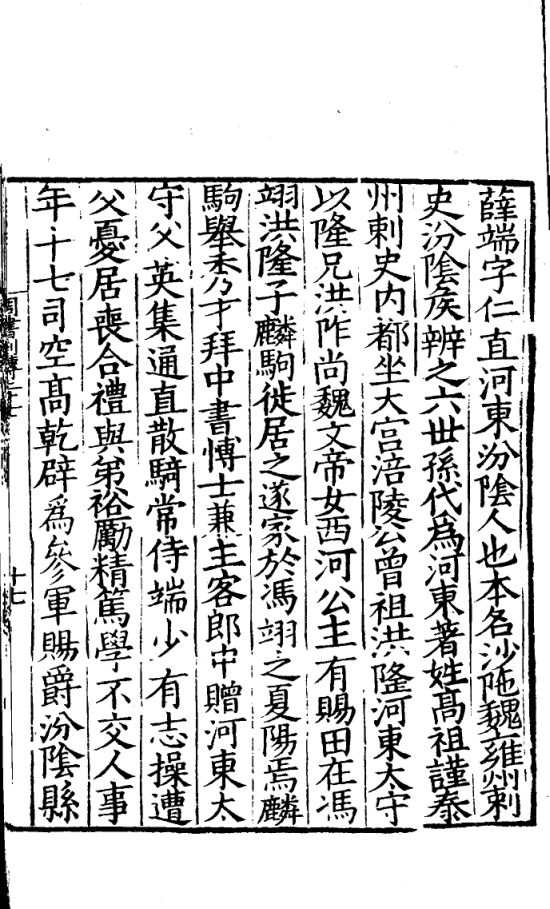 薛端字仁直河東汾陰人也本名沙陁魏雍州刺
史汾陰矦辨之六世孫代為河東著姓髙祖謹泰
州刺史内都坐大官涪陵公曾祖洪隆河東太守
以隆兄洪阼尚魏文帝女西河公主有賜田在馮
翊洪隆子麟駒徙居之遂家於馮翊之夏陽焉麟
駒舉秀才拜中書愽士兼主客郎中贈河東太
守父英集通直散騎常侍端少有志操遭
父憂居喪合禮與苐裕勵精篤學不交人事
年十七司空髙乾辟為叅軍賜爵汾陰縣
周書列傳二十七
十七